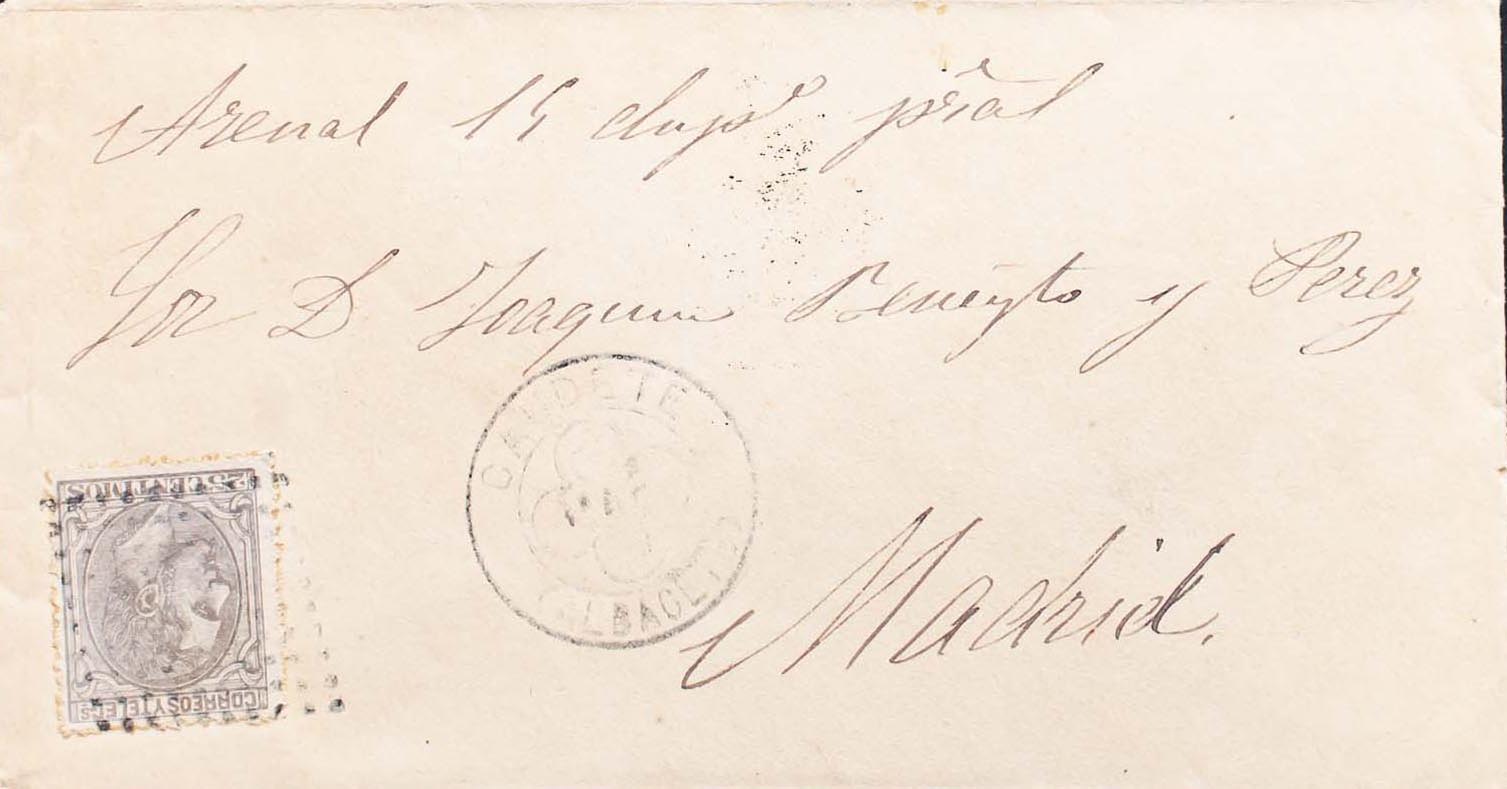 Arenal 15 dupº pràl
Sor D Joaquin Beneyto y Perez
CAUDETE
(ALBACETE)
Madrid.
25 CENTIMOS
CORREOS Y TELEGS